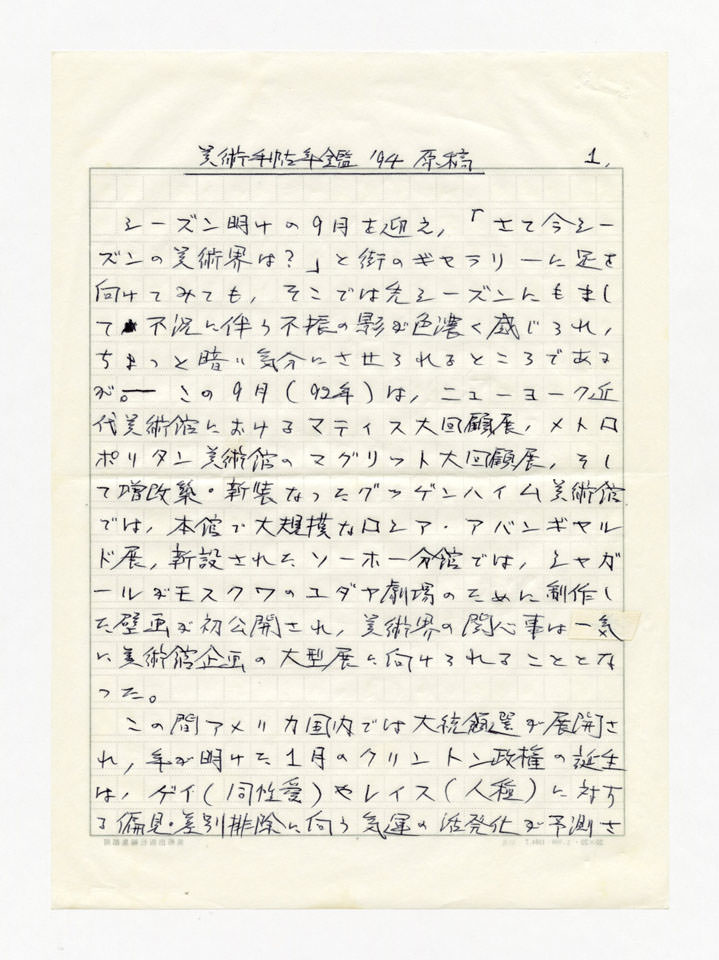 美術手帖年鑑 '94 原稿 1.
シーズン明けの9月を迎え,「さて今シー
ズンの美術界は?」と街のギャラリーに足を
向けてみても, そこでは先シーズンにもまし
て 不況に伴う不振の影が色濃く感じられ,
ちょっと暗い気分にさせられるところである
が。 この9月(92年)は, ニューヨーク近
代美術館におけるマティス大回顧展, メトロ
ポリタン美術館のマグリット大回顧展, そし
て増改築・新装なったグッゲンハイム美術館
では, 本館で大規模なロシア・アバンギャル
ド展, 新設されたソーホー分館では, シャガ
ールがモスクワのユダヤ劇場のために制作し
た壁画が初公開され, 美術界の関心事は一気
に美術館企画の大型展に向けられることとな
った。
この間アメリカ国内では大統領選が展開さ
れ, 年が明けた1月のクリントン政権の誕生
は, ゲイ(同性愛)やレイス(人種)に対す
る偏見・差別排除に向う気運の活発化が予測さ